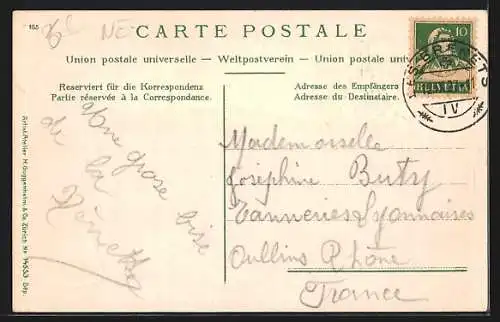 155
NE
CARTE POSTALE
Union postale universelle — Weltpostverein — Union postale
10
HELVETIA
LES BRENETS
IV
Reserviert für die Korrespondenz
Partie réservée à la Correspondance.
Adresse des Empfängers
Adresse du Destinataire.
Une grose bise
de la
Mademoiselle
Joséphine Buty
Tanneries Lyonnaises
Oullins Rhône
France
Artist. Atelier H. Guggenheim & Co. Zürich Nr. 14553 Dép.